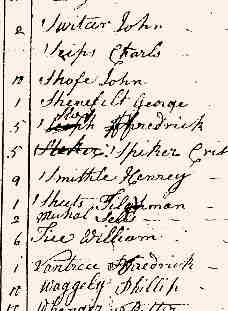 2 Switzer John -
Scips Charls
12 Shofe John
1 Shenefilt George
5 Fredrick
5 Spiker Crist
9 Smithle Henney -
1 Sheets Tilghman
2
6 Tice William
1 Vantrece Fredrick -
12 Waggely Phillip
12